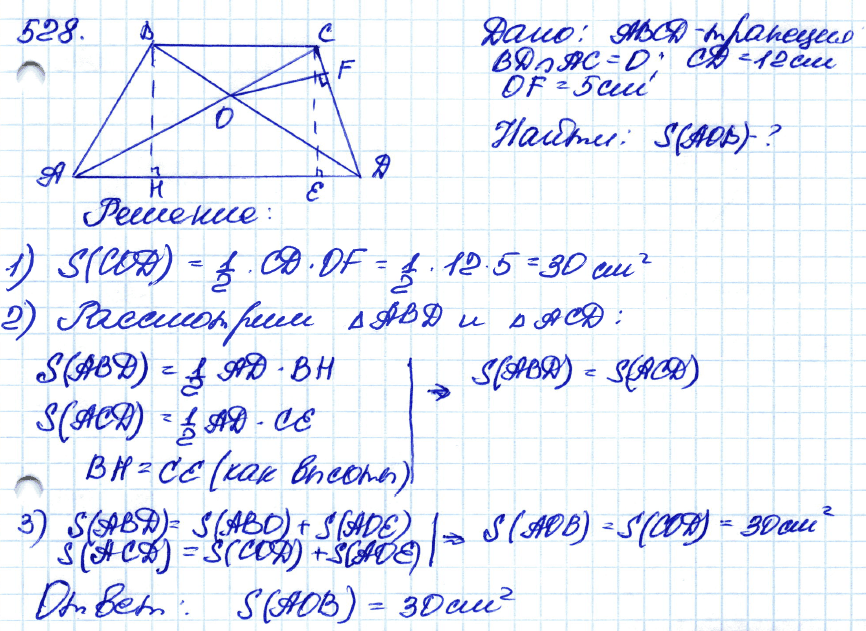 528.
B C F O A H E D
Дано: ABCD-трапеция
BD∩AC=O; CD=12см
OF=5см
Найти: S(AOB)-?
Решение:
1) S(COD) = 1/2 · CD · OF = 1/2 · 12 · 5 = 30 см²
2) Рассмотрим △ABD и △ACD:
S(ABD) = 1/2 AD · BH
S(ACD) = 1/2 AD · CE
BH = CE (как высоты)
→ S(ABD) = S(ACD)
3) S(ABD) = S(ABO) + S(AOE)
S(ACD) = S(COD) + S(AOE)
→ S(AOB) = S(COD) = 30см²
Ответ: S(AOB) = 30см²